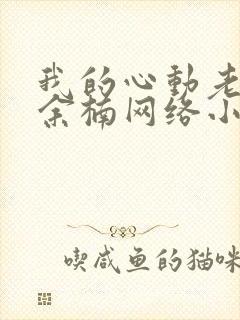 我的心動老
余楠网络小
喫咸鱼的猫咪